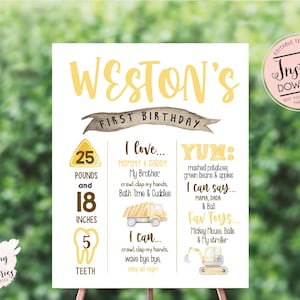 WESTON'S
FIRST BIRTHDAY
25
POUNDS
and
18
INCHES
5
TEETH
I love...
MOMMY & DADDY
My Brother
crawl, clap my hands,
Bath Time & Cuddles
I can...
crawl, clap my hands,
wave bye bye,
YUM:
mashed potatoes,
green beans & apples
I can say...
MAMA, DADA
& Ball
Fav Toys...
Mickey Mouse, Balls
& My stroller
EDITABLE
Inst
DOWN